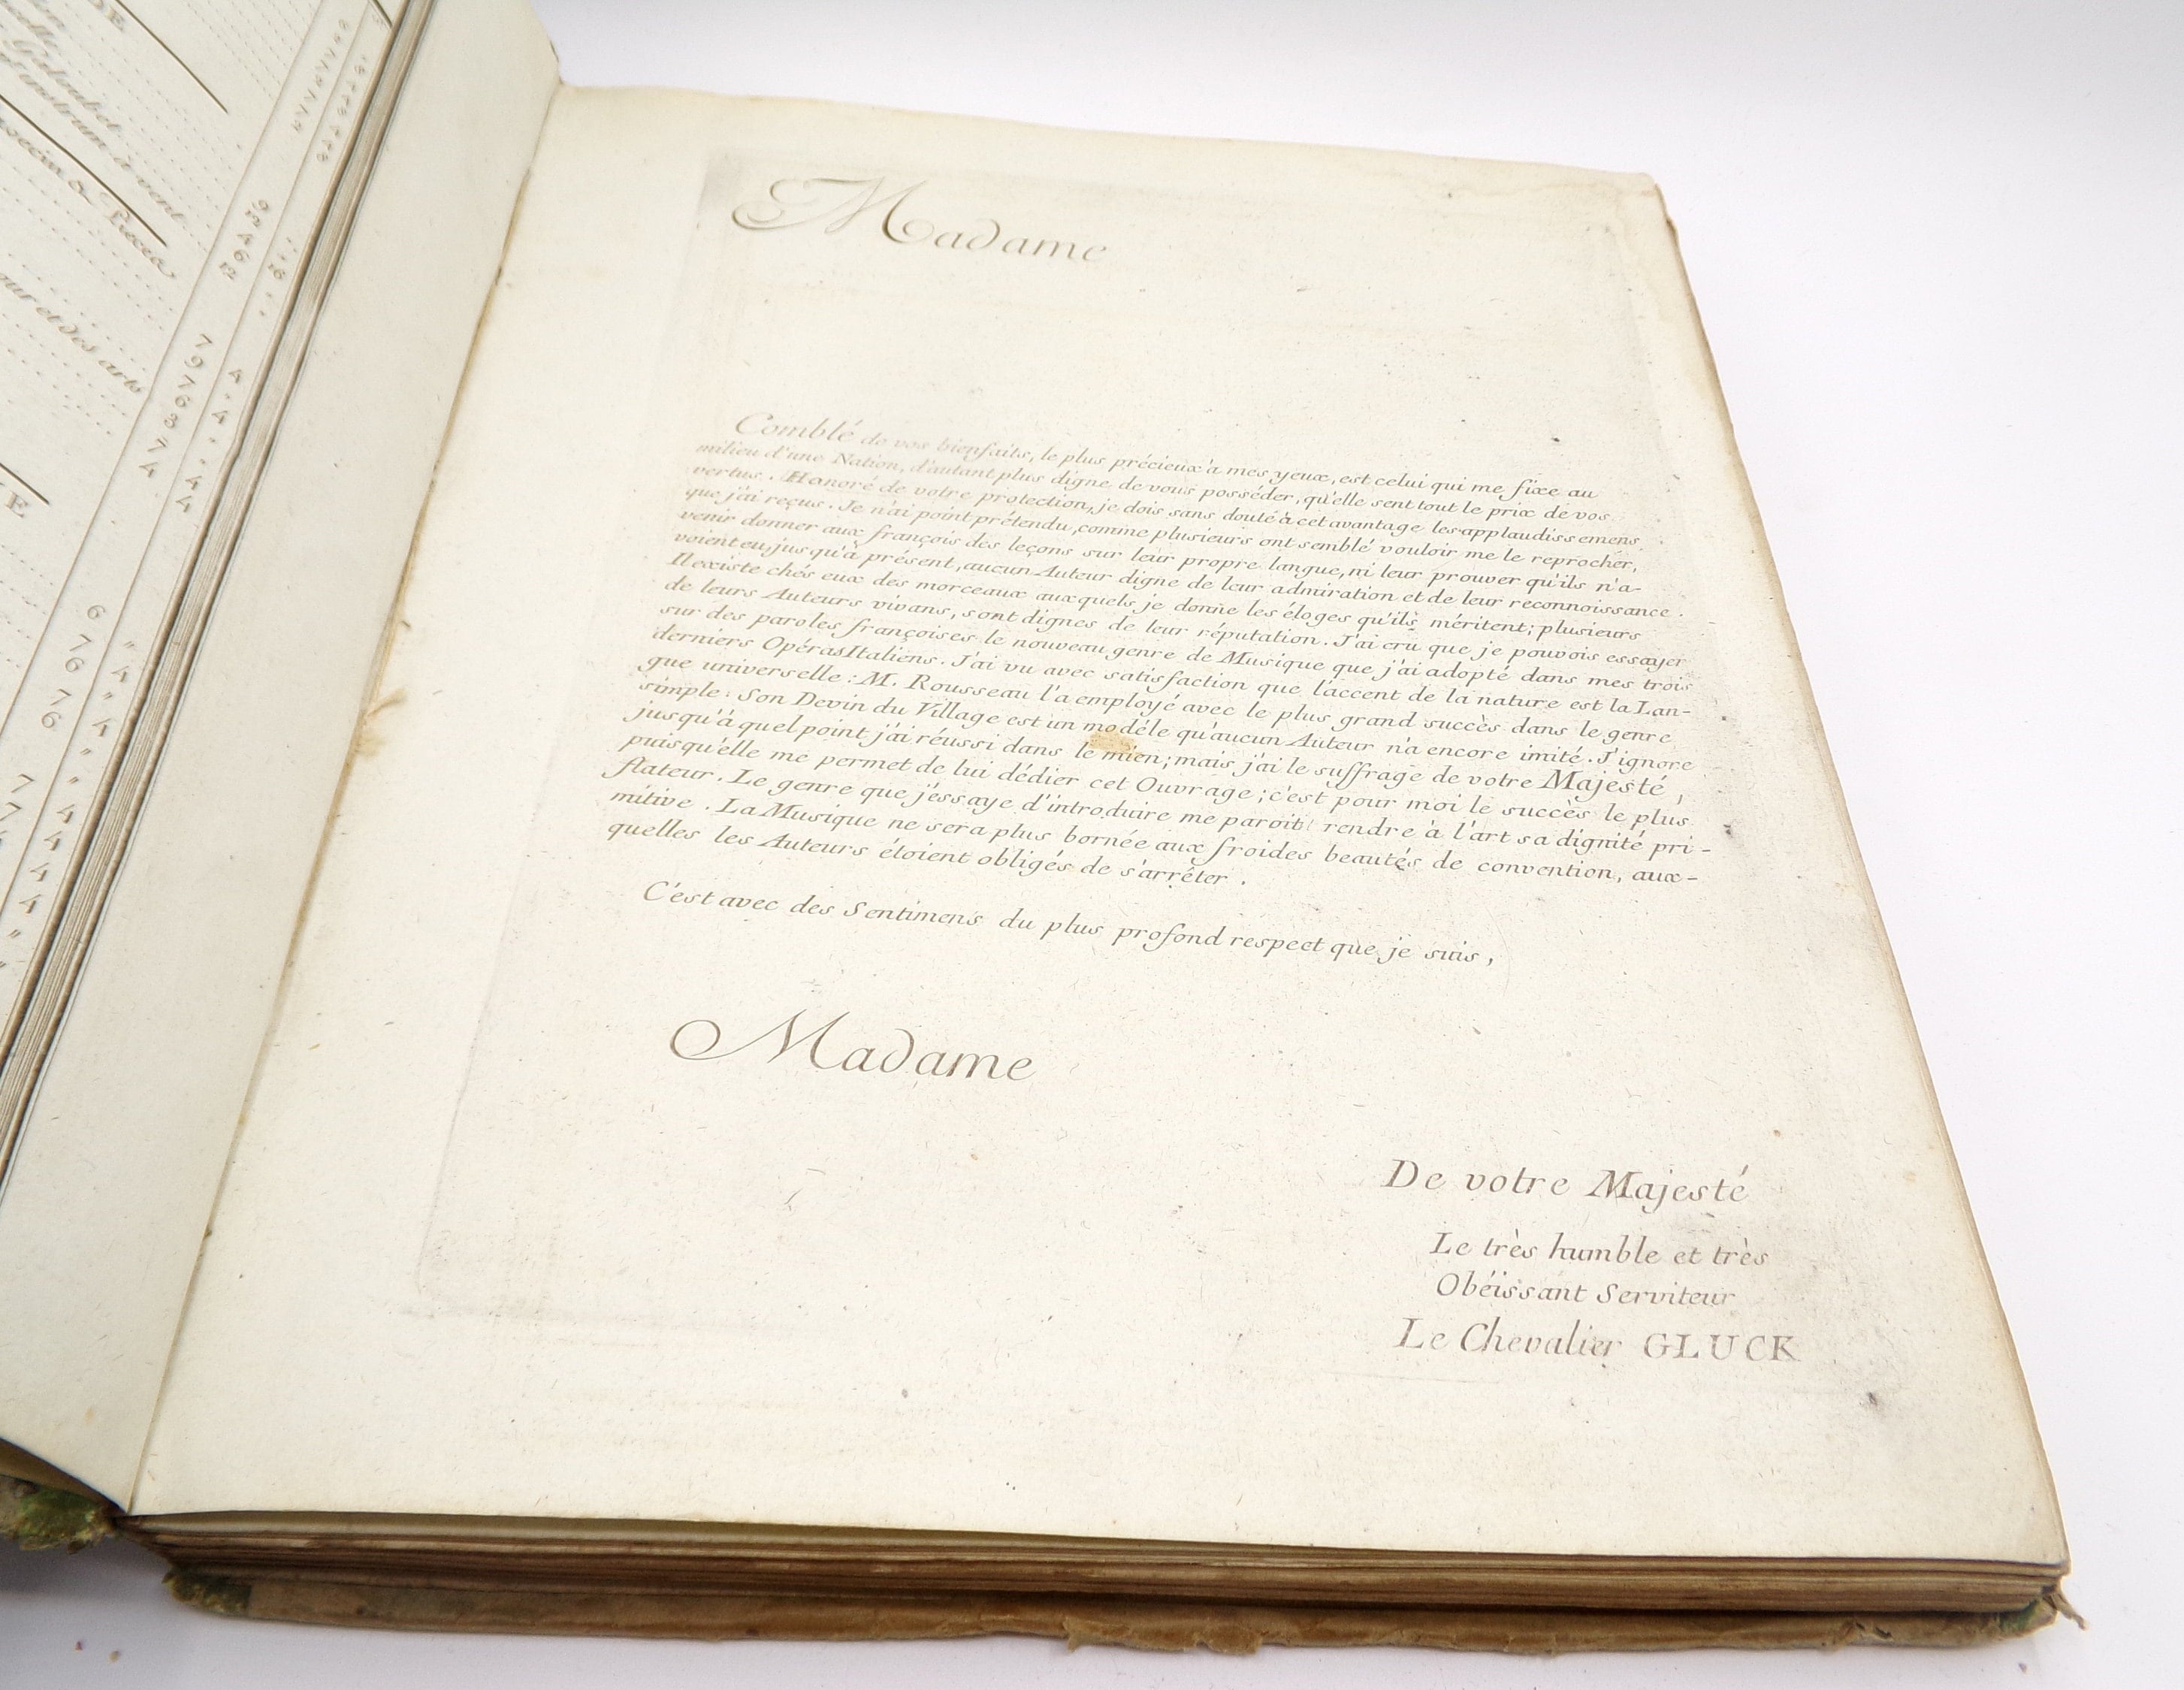 Madame
Comblé de vos bienfaits, le plus précieux à mes yeux, est celui qui me fixe au
milieu d'une Nation, d'autant plus digne de vous posséder, qu'elle sent tout le prix de vos
vertus. Honoré de votre protection, je dois sans doute à cet avantage les applaudissemens
que j'ai reçus. Je n'ai point prétendu, comme plusieurs ont semblé vouloir me le reprocher,
venir donner aux françois des leçons sur leur propre langue, ni leur prouver qu'ils n'a-
voient eu, jusqu'à présent, aucun Auteur digne de leur admiration et de leur reconnoissance.
Il existe chés eux des morceaux auxquels je donne les éloges qu'ils méritent; plusieurs
de leurs Auteurs vivans, sont dignes de leur réputation. J'ai cru que je pouvois essayer
sur des paroles françoises le nouveau genre de Musique que j'ai adopté dans mes trois
derniers Opéras Italiens. J'ai vu avec satisfaction que l'accent de la nature est la Lan-
gue universelle: M. Rousseau l'a employé avec le plus grand succès dans le genre
simple: Son Devin du Village est un modéle qu'aucun Auteur n'a encore imité. J'ignore
jusqu'à quel point j'ai réussi dans le mien; mais j'ai le suffrage de votre Majesté,
puisqu'elle me permet de lui dédier cet Ouvrage; c'est pour moi le succès le plus
flateur. Le genre que j'essaye d'introduire me paroit rendre à l'art sa dignité pri-
mitive. La Musique ne sera plus bornée aux froides beautés de convention, aux-
quelles les Auteurs étoient obligés de s'arrêter.
C'est avec des Sentimens du plus profond respect que je suis,
Madame
De votre Majesté
Le très humble et très
Obéissant Serviteur
Le Chevalier GLUCK